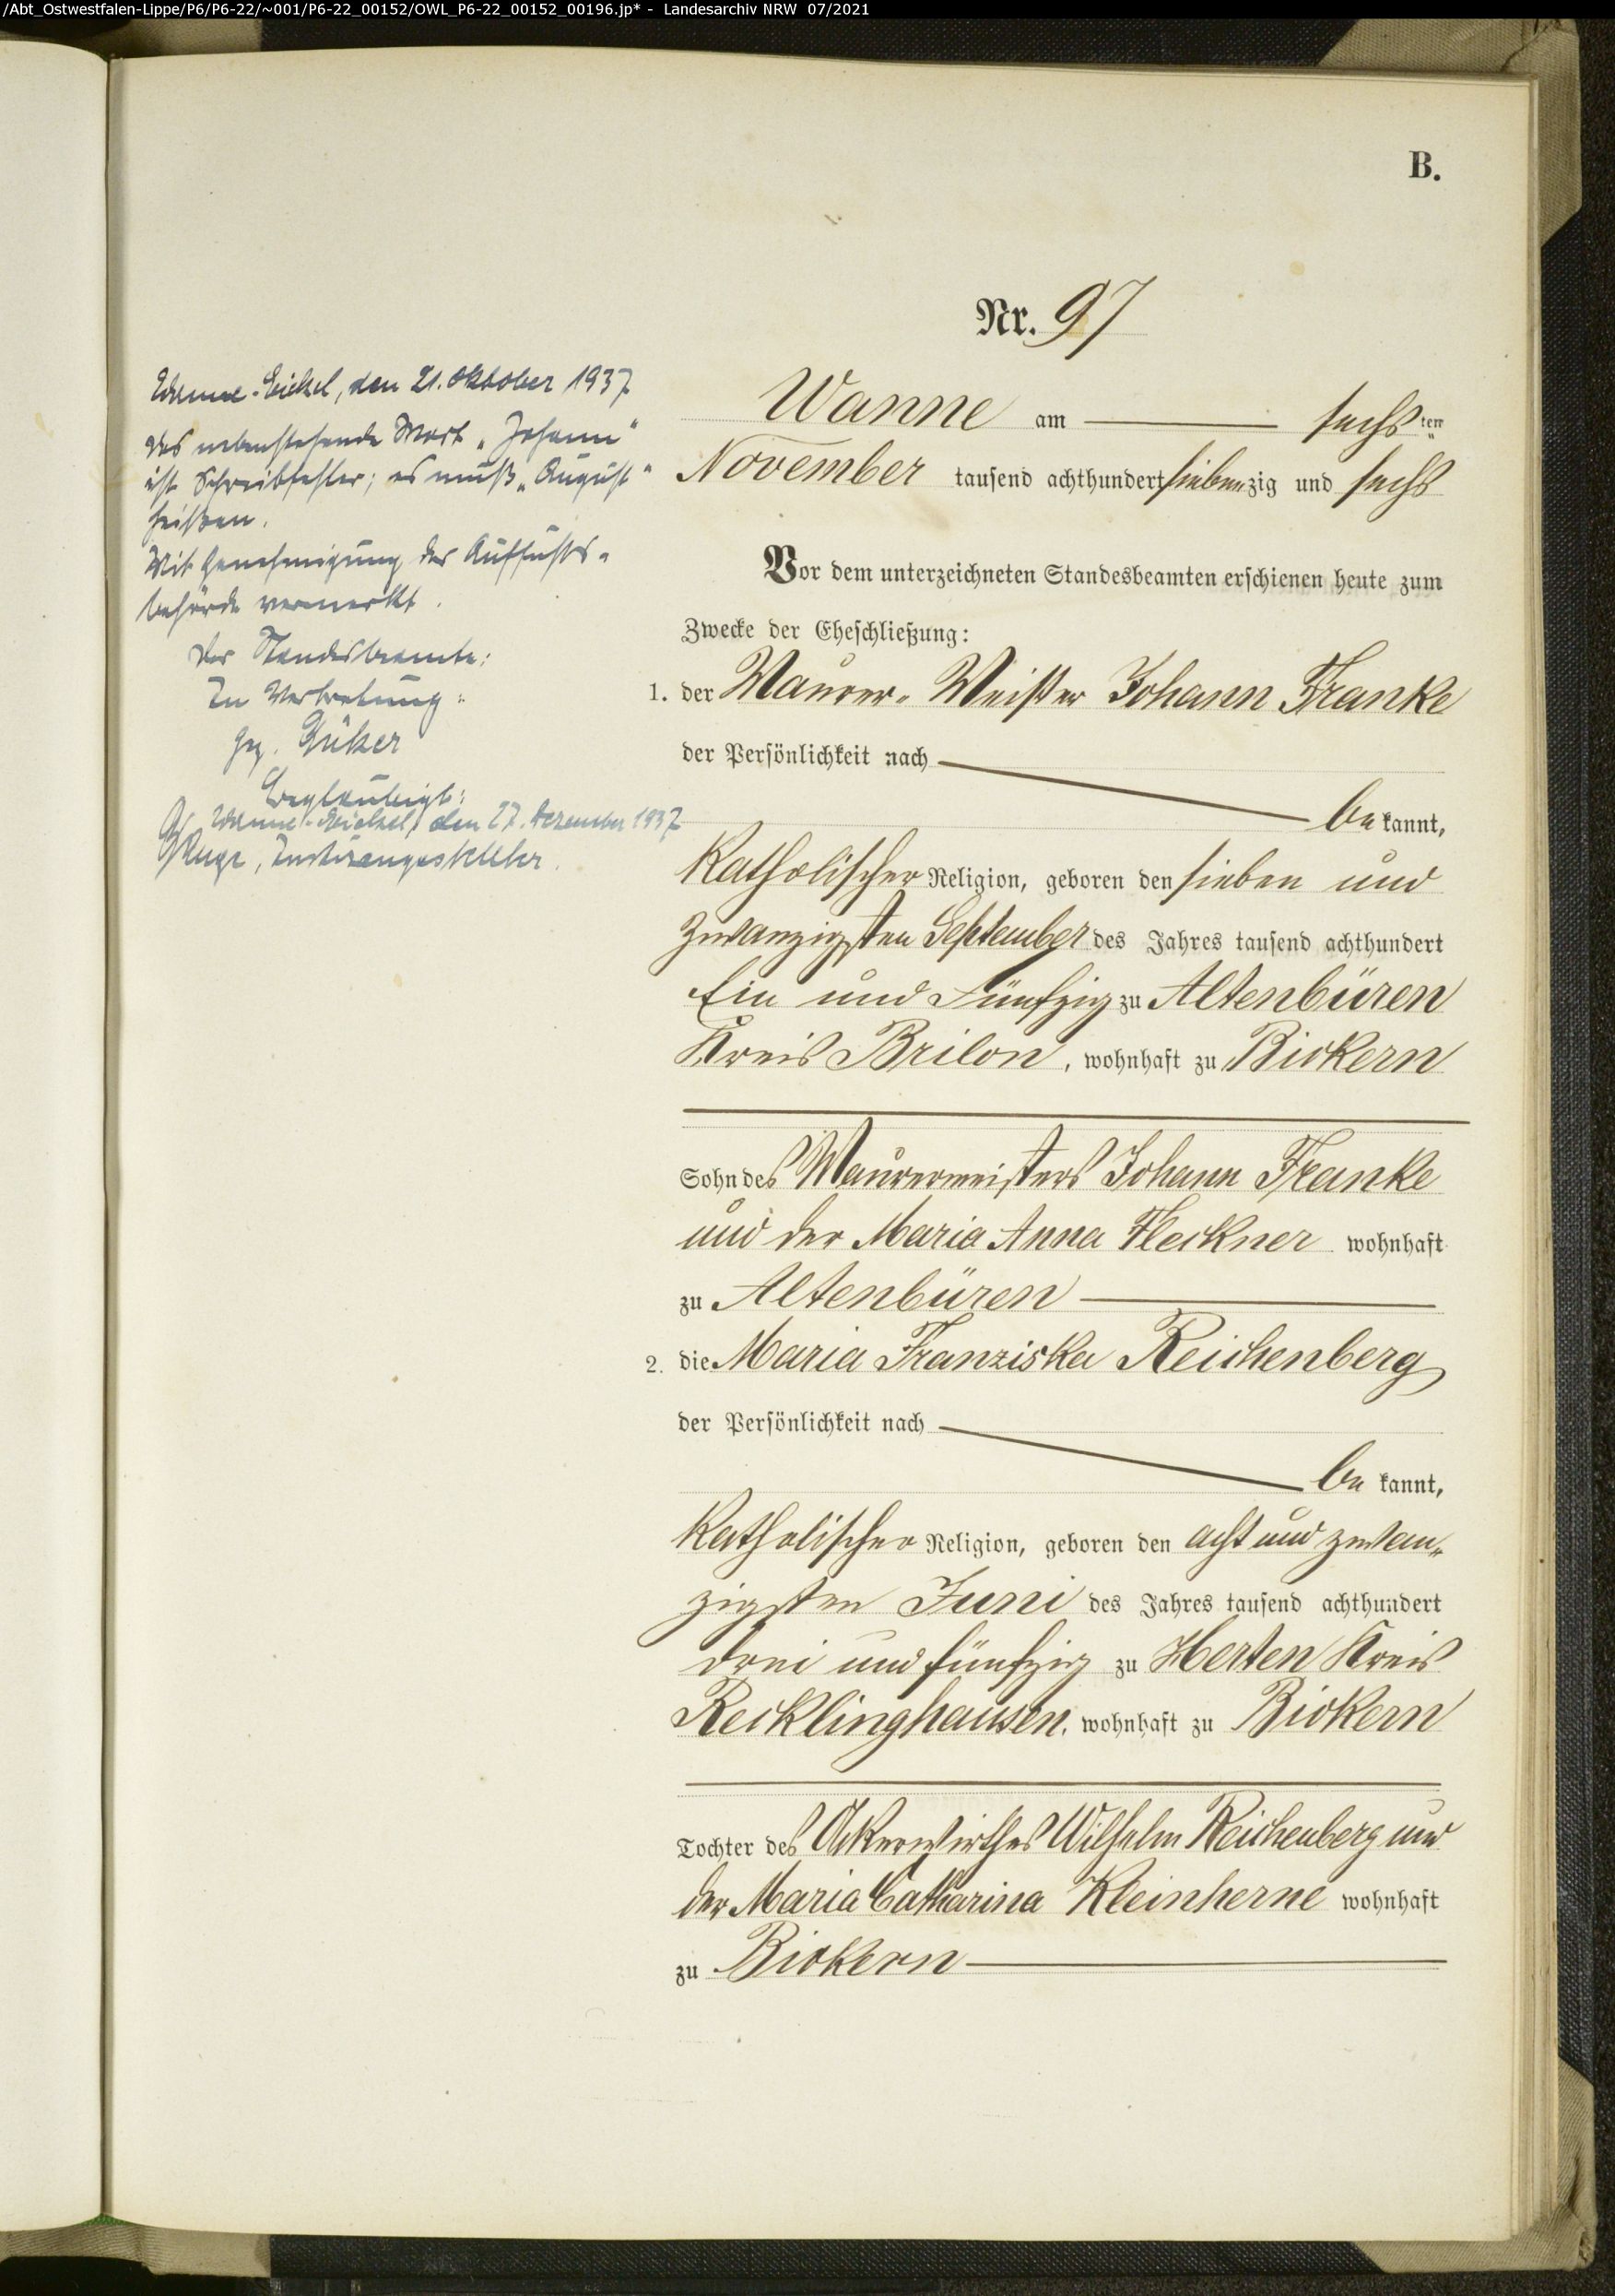 /Abt_Ostwestfalen-Lippe/P6/P6-22/~001/P6-22_00152/OWL_P6-22_00152_00196.jp* - Landesarchiv NRW 07/2021
B.
Nr. 97
Wanne am sechsten
November tausend achthundert siebenzig und sechs
Vor dem unterzeichneten Standesbeamten erschienen heute zum
Zwecke der Eheschließung:
1. der Maurer-Meister Johann Franke
der Persönlichkeit nach
bekannt,
Katholischer Religion, geboren den sieben und
zwanzigsten September des Jahres tausend achthundert
Ein und Fünfzig zu Altenbüren
Kreis Brilon, wohnhaft zu Bickern
Sohn des Maurermeisters Johann Franke
und der Maria Anna Fleckner wohnhaft
zu Altenbüren
2. die Maria Franziska Reichenberg
der Persönlichkeit nach
bekannt,
Katholischer Religion, geboren den acht und zwan-
zigsten Juni des Jahres tausend achthundert
drei und fünfzig zu Herten Kreis
Recklinghausen, wohnhaft zu Bickern
Tochter des Ackerwirthes Wilhelm Reichenberg und
der Maria Catharina Kleinherne wohnhaft
zu Bickern
Wanne-Eickel, den 21. Oktober 1937
Das nebenstehende Wort „Johann"
ist Schreibfehler; es muß „August"
heißen.
Mit Genehmigung der Aufsichts-
behörde vermerkt.
Der Standesbeamte:
In Vertretung:
gez. Güker
Beglaubigt:
Wanne-Eickel, den 27. Dezember 1937